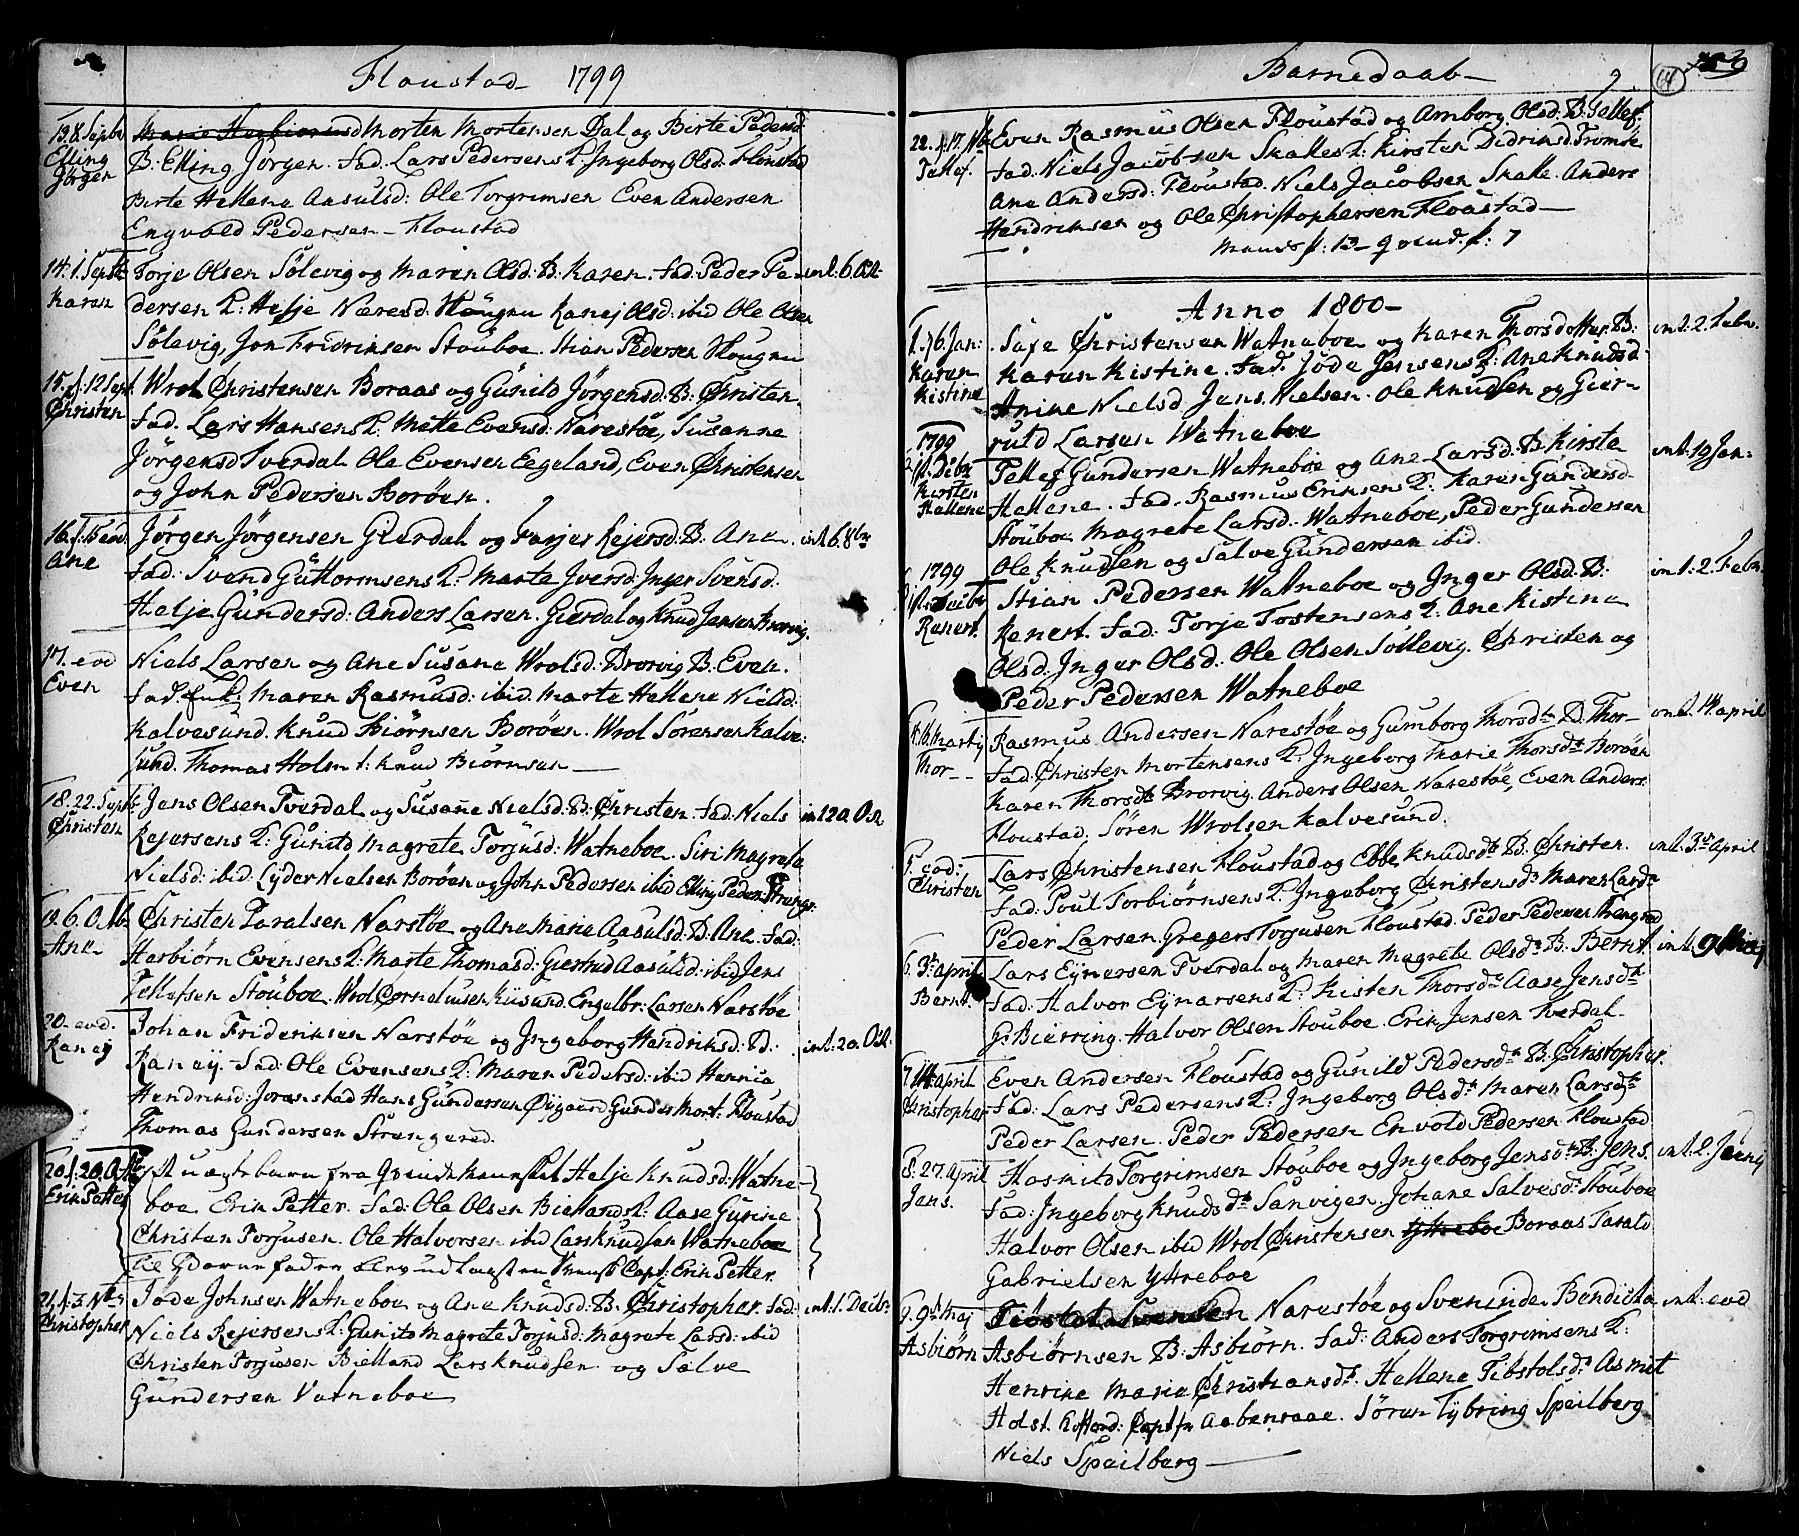 Floustad 1799
13. 8. Septbr
Elling
Jörgen
Morten Mortensen Dal og Birte Pedersd
B. Elling Jörgen. Fad. Lars Pedersens K: Ingeborg Olsd: Floustad
Birte Hellene Aasulsd: Ole Torgrimsen Even Andersen
Engvold Pedersen - Floustad
14. 1. Septbr
Karen
Torje Olsen Sölevig og Maren Olsd: B: Karen. Fad: Peder Pe-
int: 6. Oct:
dersen K: Helje Næresd. Hougnu Kanej Olsd: ibid Ole Olsen
Sölevig, Jon Fridrirsen Stouboe. Stian Pedersen Hougnu
15. 12 Sept
Christen
Wrol Christensen Boraas og Gunild Jörgensd: B: Christen
Fad. Lars Hansens K: Mette Evensd: Narestöe, Susanne
Jörgensd Tverdal Ole Evensen Eegeland, Even Christensen
og John Pedersen Boröen.
16. f. 15 eod
Ane
Jörgen Jörgensen Gierdal og Rejersd: B. Ane.
int 6. 8br
Fad: Svend Guttormsens K: Marte Iversd: Inger Svensd.
Helje Gundersd: Anders Larsen. Gierdal og Knud Jensen Brorvig
17. eod
Even
Niels Larsen og Ane Susane Wrolsd: Brorvig B. Even.
Fad. Maren Rasmusd: ibid. Marte Hellene Nielsd:
Kalvesund. Knud Biörnsen Boröen. Wrol Sörensen Kalve-
sund. Thomas Holm t: Knud Biörnsen
18. 22. Sept:
Christen
Jens Olsen Tverdal og Susane Nielsd: B: Christen. Fad: Niels
int 20. Oct
Rejersens K: Gunild Magrete Torjusd: Watneboe. Siri Magrete
Nielsd: ibid. Lyder Nielsen Boröen og John Pedersen ibid Elling Peders:
19. 6. Octb:
Ane
Christen Taralsen Narstöe og Ane Marie Aasulsd: B. Ane. Fad:
Herbiörn Evensens K: Marte Thomasd: Giertrud Aasulsd: ibid Jens
Tellefsen Stouboe. Wrol Corneliusen Engelbr: Larsen Narstöe
20. eod.
Kanej
Johan Frideriksen Narstöe og Ingeborg Hendriksd: B:
int: 20. Oct.
Kaneij Fad: Ole Evensens K: Maren Pedersd: ibid Henrica
Hendriksd: Joranstad Hans Gundersen Gunder Mort: Floustad
Thomas Gundersen Strengered.
20. f. 20. Octbr
Erik Petter
Et uægte barn fra Qvindemennesket Helje Knudsd: Watne-
boe Erik Petter. Fad: Ole Olsen Biellands K: Aase Gurine
Christen Torjusen. Ole Halvorsen ibid Lars Knudsen Watneboe
Til Barnefader blev udlagt en Svensk Capt: Erik Petter.
21. f. 3. Nbr
Christopher
Jöde Johnsen Watneboe og Ane Knudsd: B. Christopher. Fad:
int. 1. Decbr:
Niels Rejersens K: Gunild Magrete Torjusd: Magrete Larsd: ibid
Christen Torjusen Bielland Lars Knudsen og Salve
Gundersen Vatneboe
Barnedaab
64
22. f. 17. Nb
Tellef.
Even Rasmus Olsen Floustad og Amborg Olsd: B. Tellef.
Fad: Niels Jacobsen Skalles K: Kirsten Dedrinsd: Tromöe
Ane Andersd: Floustad. Niels Jacobsen Skalle. Anders
Hendriksen og Ole Christophersen Floustad
13 - 7
Anno 1800
1. 6 Jan:
Karen
Kistine
Saxe Christensen Watneboe og Karen Thorsdotter. B:
int: 2. Febr.
Karen Kistine. Fad. Jöde Jensens K: Ane Knudsd:
Anine Nielsd Jens Nielsen. Ole Knudsen og Gier-
ruld Larsen Watneboe
1799
Decbr
Kirsten
Hellene
Tellef Gundersen Watneboe og Ane Larsd. B. Kirste
int: 19 Jan:
Hellene. Fad. Rasmus Eriksens K: Karen Gundersd.
Stouboe Magrete Larsd: Watneboe, Peder Gundersen
Ole Knudsen og Salve Gundersen ibid.
1799
Decbr
Renert.
Stian Pedersen Watneboe og Inger Olsd: B:
int: 2. Febr.
Renert. Fad: Torje Tostensens K: Ane Kistine
Olsd: Inger Olsd. Ole Olsen Sollevig. Christen og
Peder Pedersen Watneboe
4. 16. Martij
Thor
Rasmus Andersen Narestöe og Gumborg Thorsdtr B. Thor
int. 14. april
Fad: Christen Mortensens K: Ingeborg Marie Thorsdtr Boröen
Karen Thorsdtr Brorvig Anders Olsen Narestöe, Even Anders:
Floustad. Sören Wrolsen Kalvesund.
5. eod:
Christen
Lars Christensen Floustad og Ebbe Knudsdtr B. Christen.
int. 3de April
Fad: Poul Torbiörnsens K: Ingeborg Christensdtr Maren Larsdtr
Peder Larsen. Gregers Torjusen Floustad. Peder Pedersen
6. 3de April
Bernt.
Lars Eynersen Tverdal og Maren Magrete Olsdtr B. Bernt.
int. 9 Maj
Fad: Halvor Eynarsens K: Kisten Thorsdtr Aase Jensdtr
G: Bierring. Halvor Olsen Stouboe. Erik Jensen Tverdal
7. 14 April
Christopher
Even Andersen Floustad og Gunild Pedersdtr B. Christopher.
Fad: Lars Pedersens K: Ingeborg Olsdtr Maren Larsdtr
Peder Larsen. Peder Pedersen Envold Pedersen Floustad
8. 27. April
Jens.
Hosmild Torgrimsen Stouboe og Ingeborg Jensdtr B. Jens.
int. 2. Juny
Fad: Ingeborg Knudsdtr Sanvigen. Johane Salvesdtr Stouboe
Halvor Olsen ibid Wrol Christensen Ytreboe Boraas Tarald
Gabrielsen Ytreboe
9. 9de Maj
Asbiörn
Tiöstol Svensen Narestöe og Bendicta
int: eod
Asbiörnsen B. Asbiörn. Fad: Anders Torgrimsens K:
Henrine Marie Christiansdtr. Hellene Tibstolsdtr Asmit
Holst. Capt fr Aabenraae. Sören Tybring Speilberg
Niels Speilberg